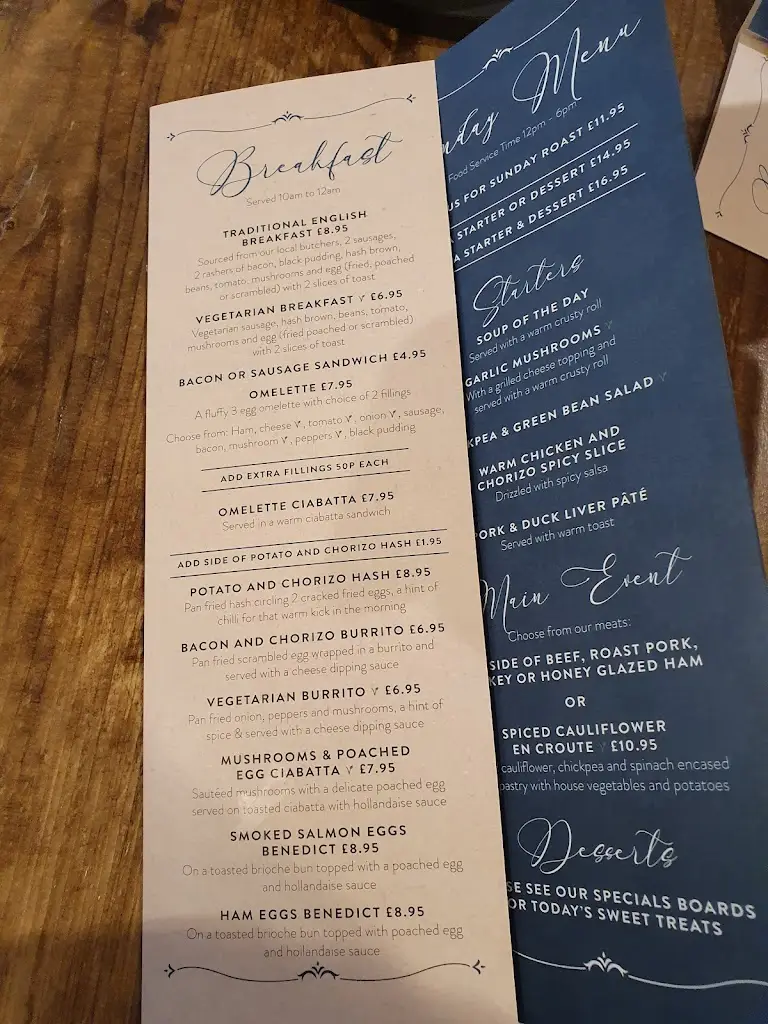 Breakfast
Served 10am to 12am
TRADITIONAL ENGLISH
BREAKFAST £8.95
Sourced from our local butchers, 2 sausages,
2 rashers of bacon, black pudding, hash brown,
beans, tomato, mushrooms and egg (fried, poached
or scrambled) with 2 slices of toast
VEGETARIAN BREAKFAST V £6.95
Vegetarian sausage, hash brown, beans, tomato,
mushrooms and egg (fried poached or scrambled)
with 2 slices of toast
BACON OR SAUSAGE SANDWICH £4.95
OMELETTE £7.95
A fluffy 3 egg omelette with choice of 2 fillings
Choose from: Ham, cheese V, tomato V, onion V, sausage,
bacon, mushroom V, peppers V, black pudding
ADD EXTRA FILLINGS 50P EACH
OMELETTE CIABATTA £7.95
Served in a warm ciabatta sandwich
ADD SIDE OF POTATO AND CHORIZO HASH £1.95
POTATO AND CHORIZO HASH £8.95
Pan fried hash circling 2 cracked fried eggs, a hint of
chilli for that warm kick in the morning
BACON AND CHORIZO BURRITO £6.95
Pan fried scrambled egg wrapped in a burrito and
served with a cheese dipping sauce
VEGETARIAN BURRITO V £6.95
Pan fried onion, peppers and mushrooms, a hint of
spice & served with a cheese dipping sauce
MUSHROOMS & POACHED
EGG CIABATTA V £7.95
Sautéed mushrooms with a delicate poached egg
served on toasted ciabatta with hollandaise sauce
SMOKED SALMON EGGS
BENEDICT £8.95
On a toasted brioche bun topped with a poached egg
and hollandaise sauce
HAM EGGS BENEDICT £8.95
On a toasted brioche bun topped with poached egg
and hollandaise sauce
nday Menu
Food Service Time 12pm - 6pm
US FOR SUNDAY ROAST £11.95
STARTER OR DESSERT £14.95
A STARTER & DESSERT £16.95
Starters
SOUP OF THE DAY
Served with a warm crusty roll
GARLIC MUSHROOMS V
With a grilled cheese topping and
served with a warm crusty roll
KPEA & GREEN BEAN SALAD V
WARM CHICKEN AND
CHORIZO SPICY SLICE
Drizzled with spicy salsa
ORK & DUCK LIVER PÂTÉ
Served with warm toast
Main Event
Choose from our meats:
SIDE OF BEEF, ROAST PORK,
KEY OR HONEY GLAZED HAM
OR
SPICED CAULIFLOWER
EN CROUTE V £10.95
cauliflower, chickpea and spinach encased
pastry with house vegetables and potatoes
Desserts
SE SEE OUR SPECIALS BOARDS
OR TODAY'S SWEET TREATS